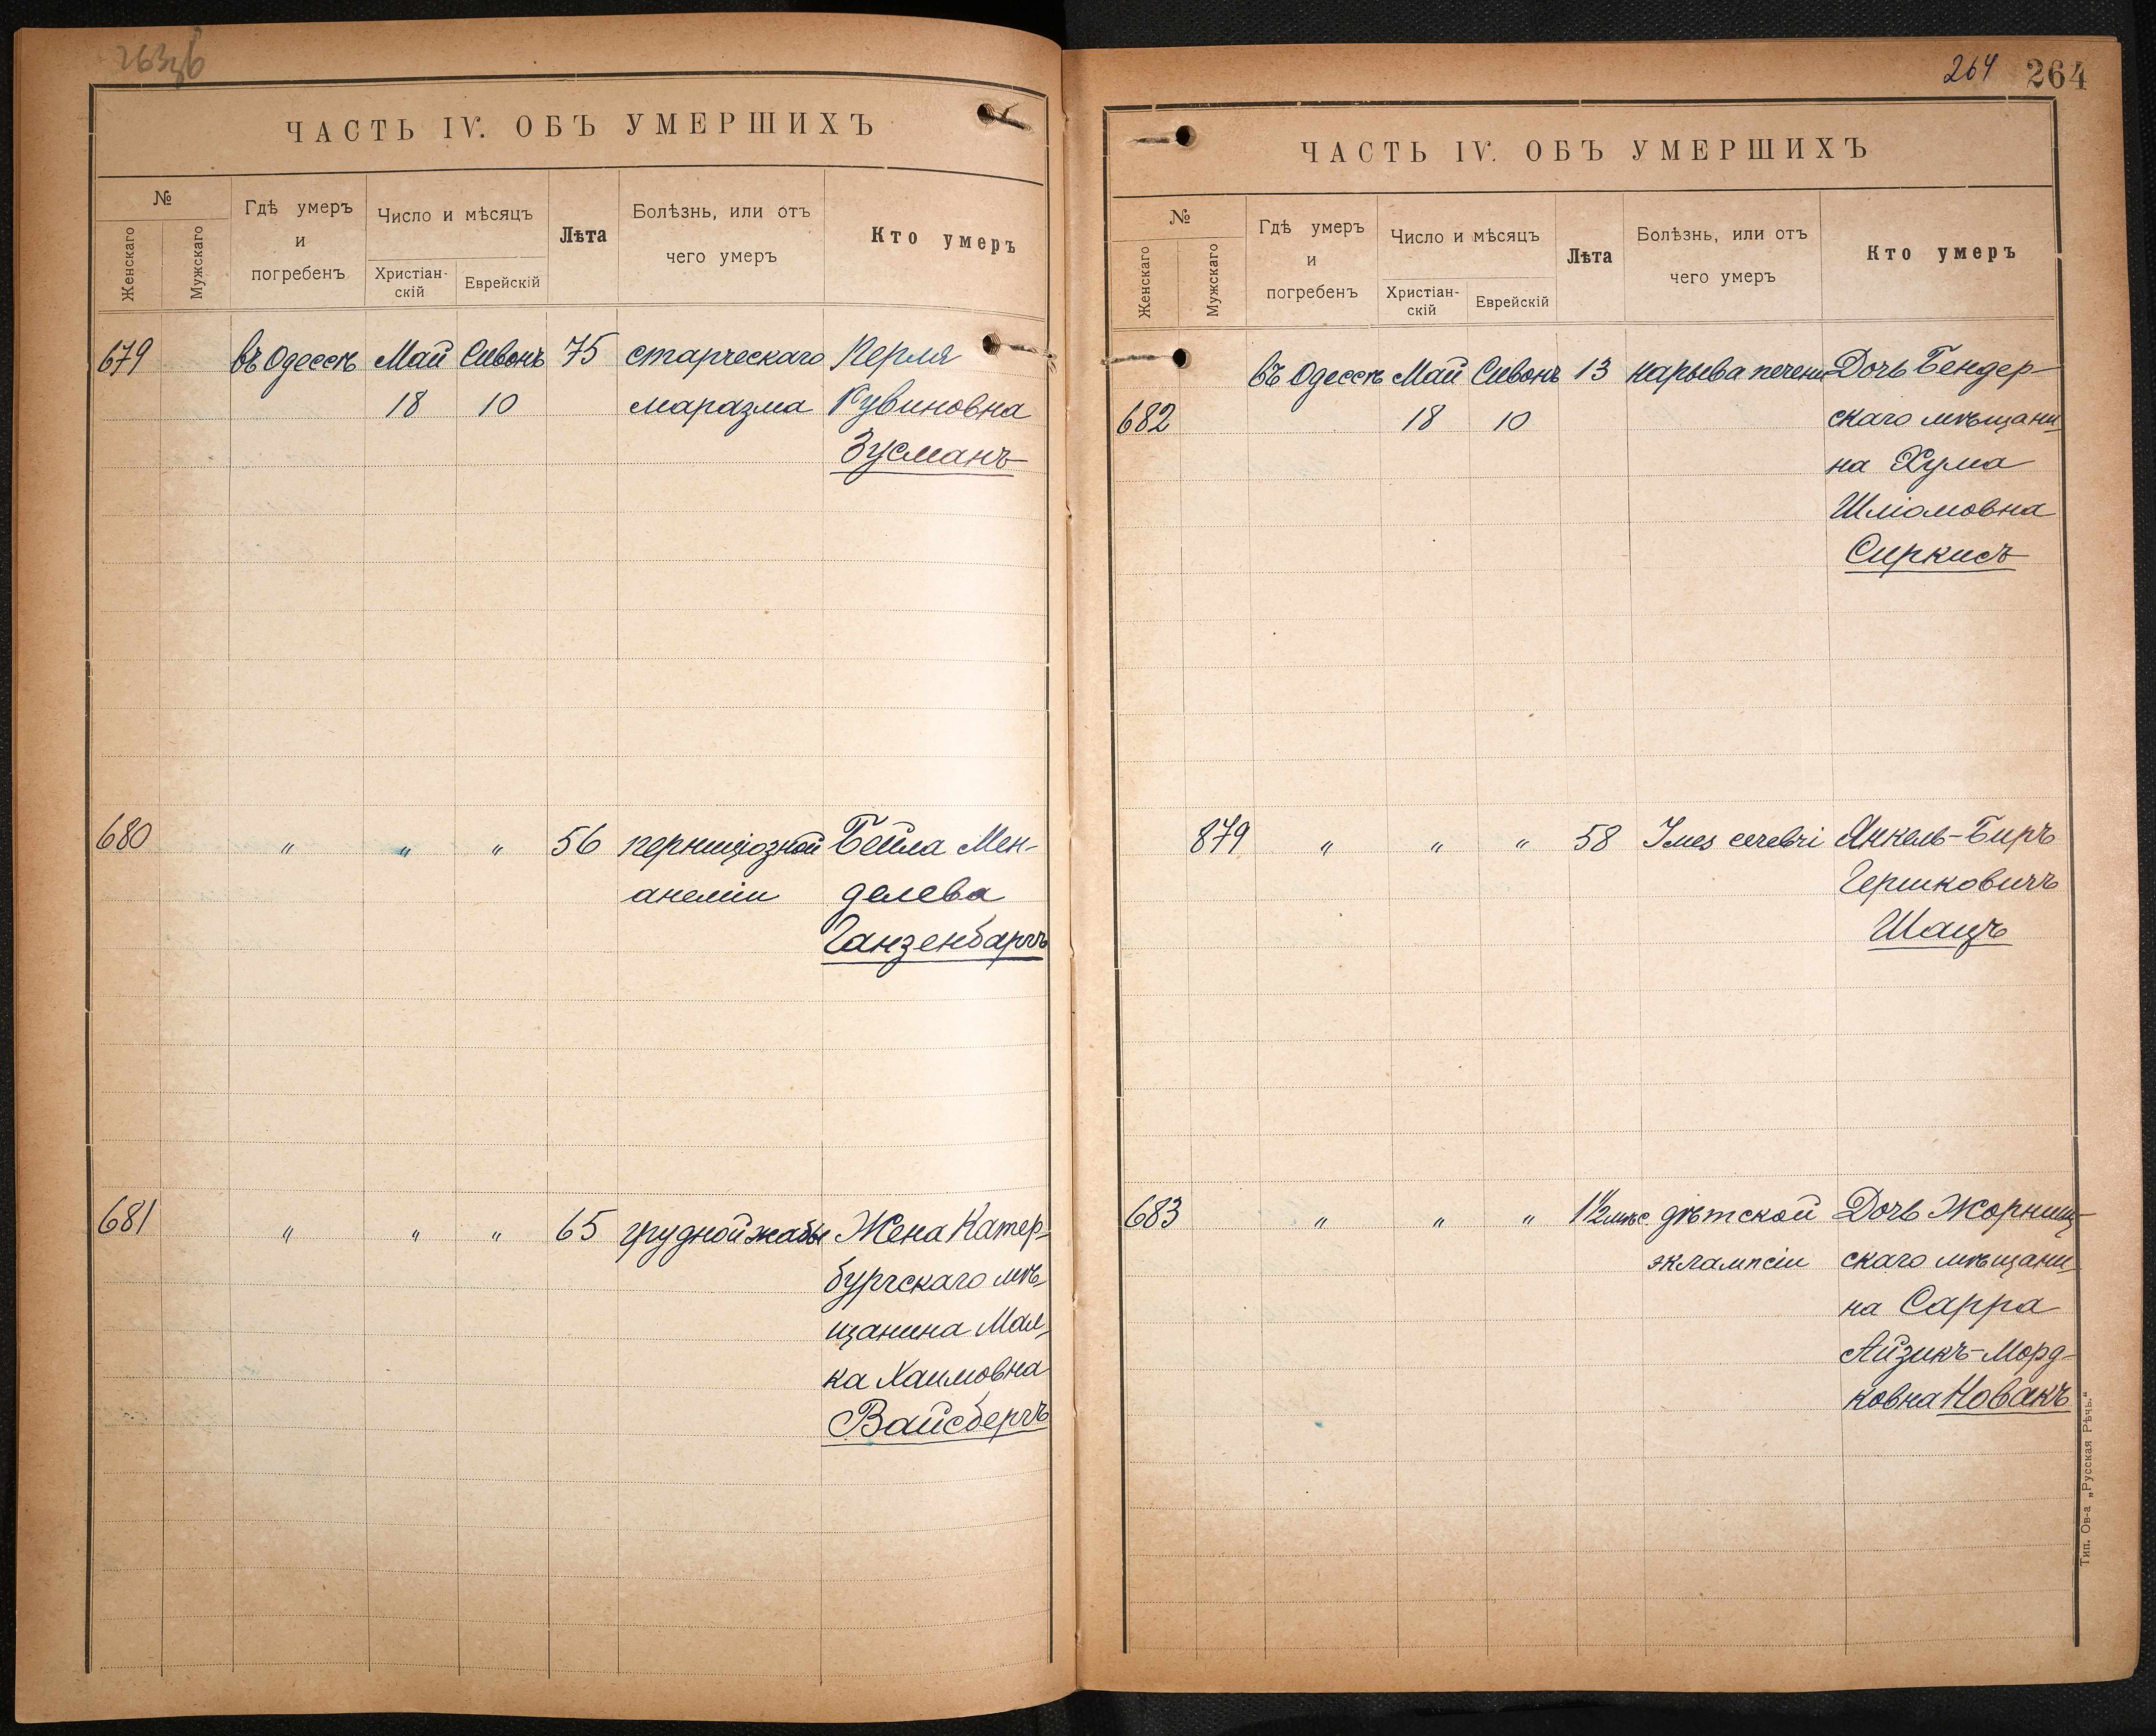 263об
ЧАСТЬ IV. ОБЪ УМЕРШИХЪ
№
Женскаго
Мужскаго
Гдѣ умеръ
и
погребенъ
Число и мѣсяцъ
Христіан-
скій
Еврейскій
Лѣта
Болѣзнь, или отъ
чего умеръ
Кто умеръ
679 въ Одессѣ Май Сивонъ 75 старческаго Перля
18 10 маразма Кувиновна
Зусманъ
680 " " " 56 перниціозной Бейла Мен-
анеміи делева
Ганзенбаргъ
681 " " " 65 грудной жабы Жена Катер-
бургскаго мѣ-
щанина Мал-
ка Хаимовна
Вайсбергъ
264 264
ЧАСТЬ IV. ОБЪ УМЕРШИХЪ
№
Женскаго
Мужскаго
Гдѣ умеръ
и
погребенъ
Число и мѣсяцъ
Христіан-
скій
Еврейскій
Лѣта
Болѣзнь, или отъ
чего умеръ
Кто умеръ
въ Одессѣ Май Сивонъ 13 нарыва печени Дочь Бендер-
682 18 10 скаго мѣщани-
на Хума
Шліомовна
Сиркисъ
879 " " " 58 cerebri Янкель-Биръ
Гершковичъ
Шацъ
683 " " " 1 1/2 мѣс дѣтской Дочь Жорнищ-
эклампсіи скаго мѣщани-
на Сарра
Айзикъ-Морд-
ковна Новакъ
Тип. Ов-а „Русская Рѣчь.“